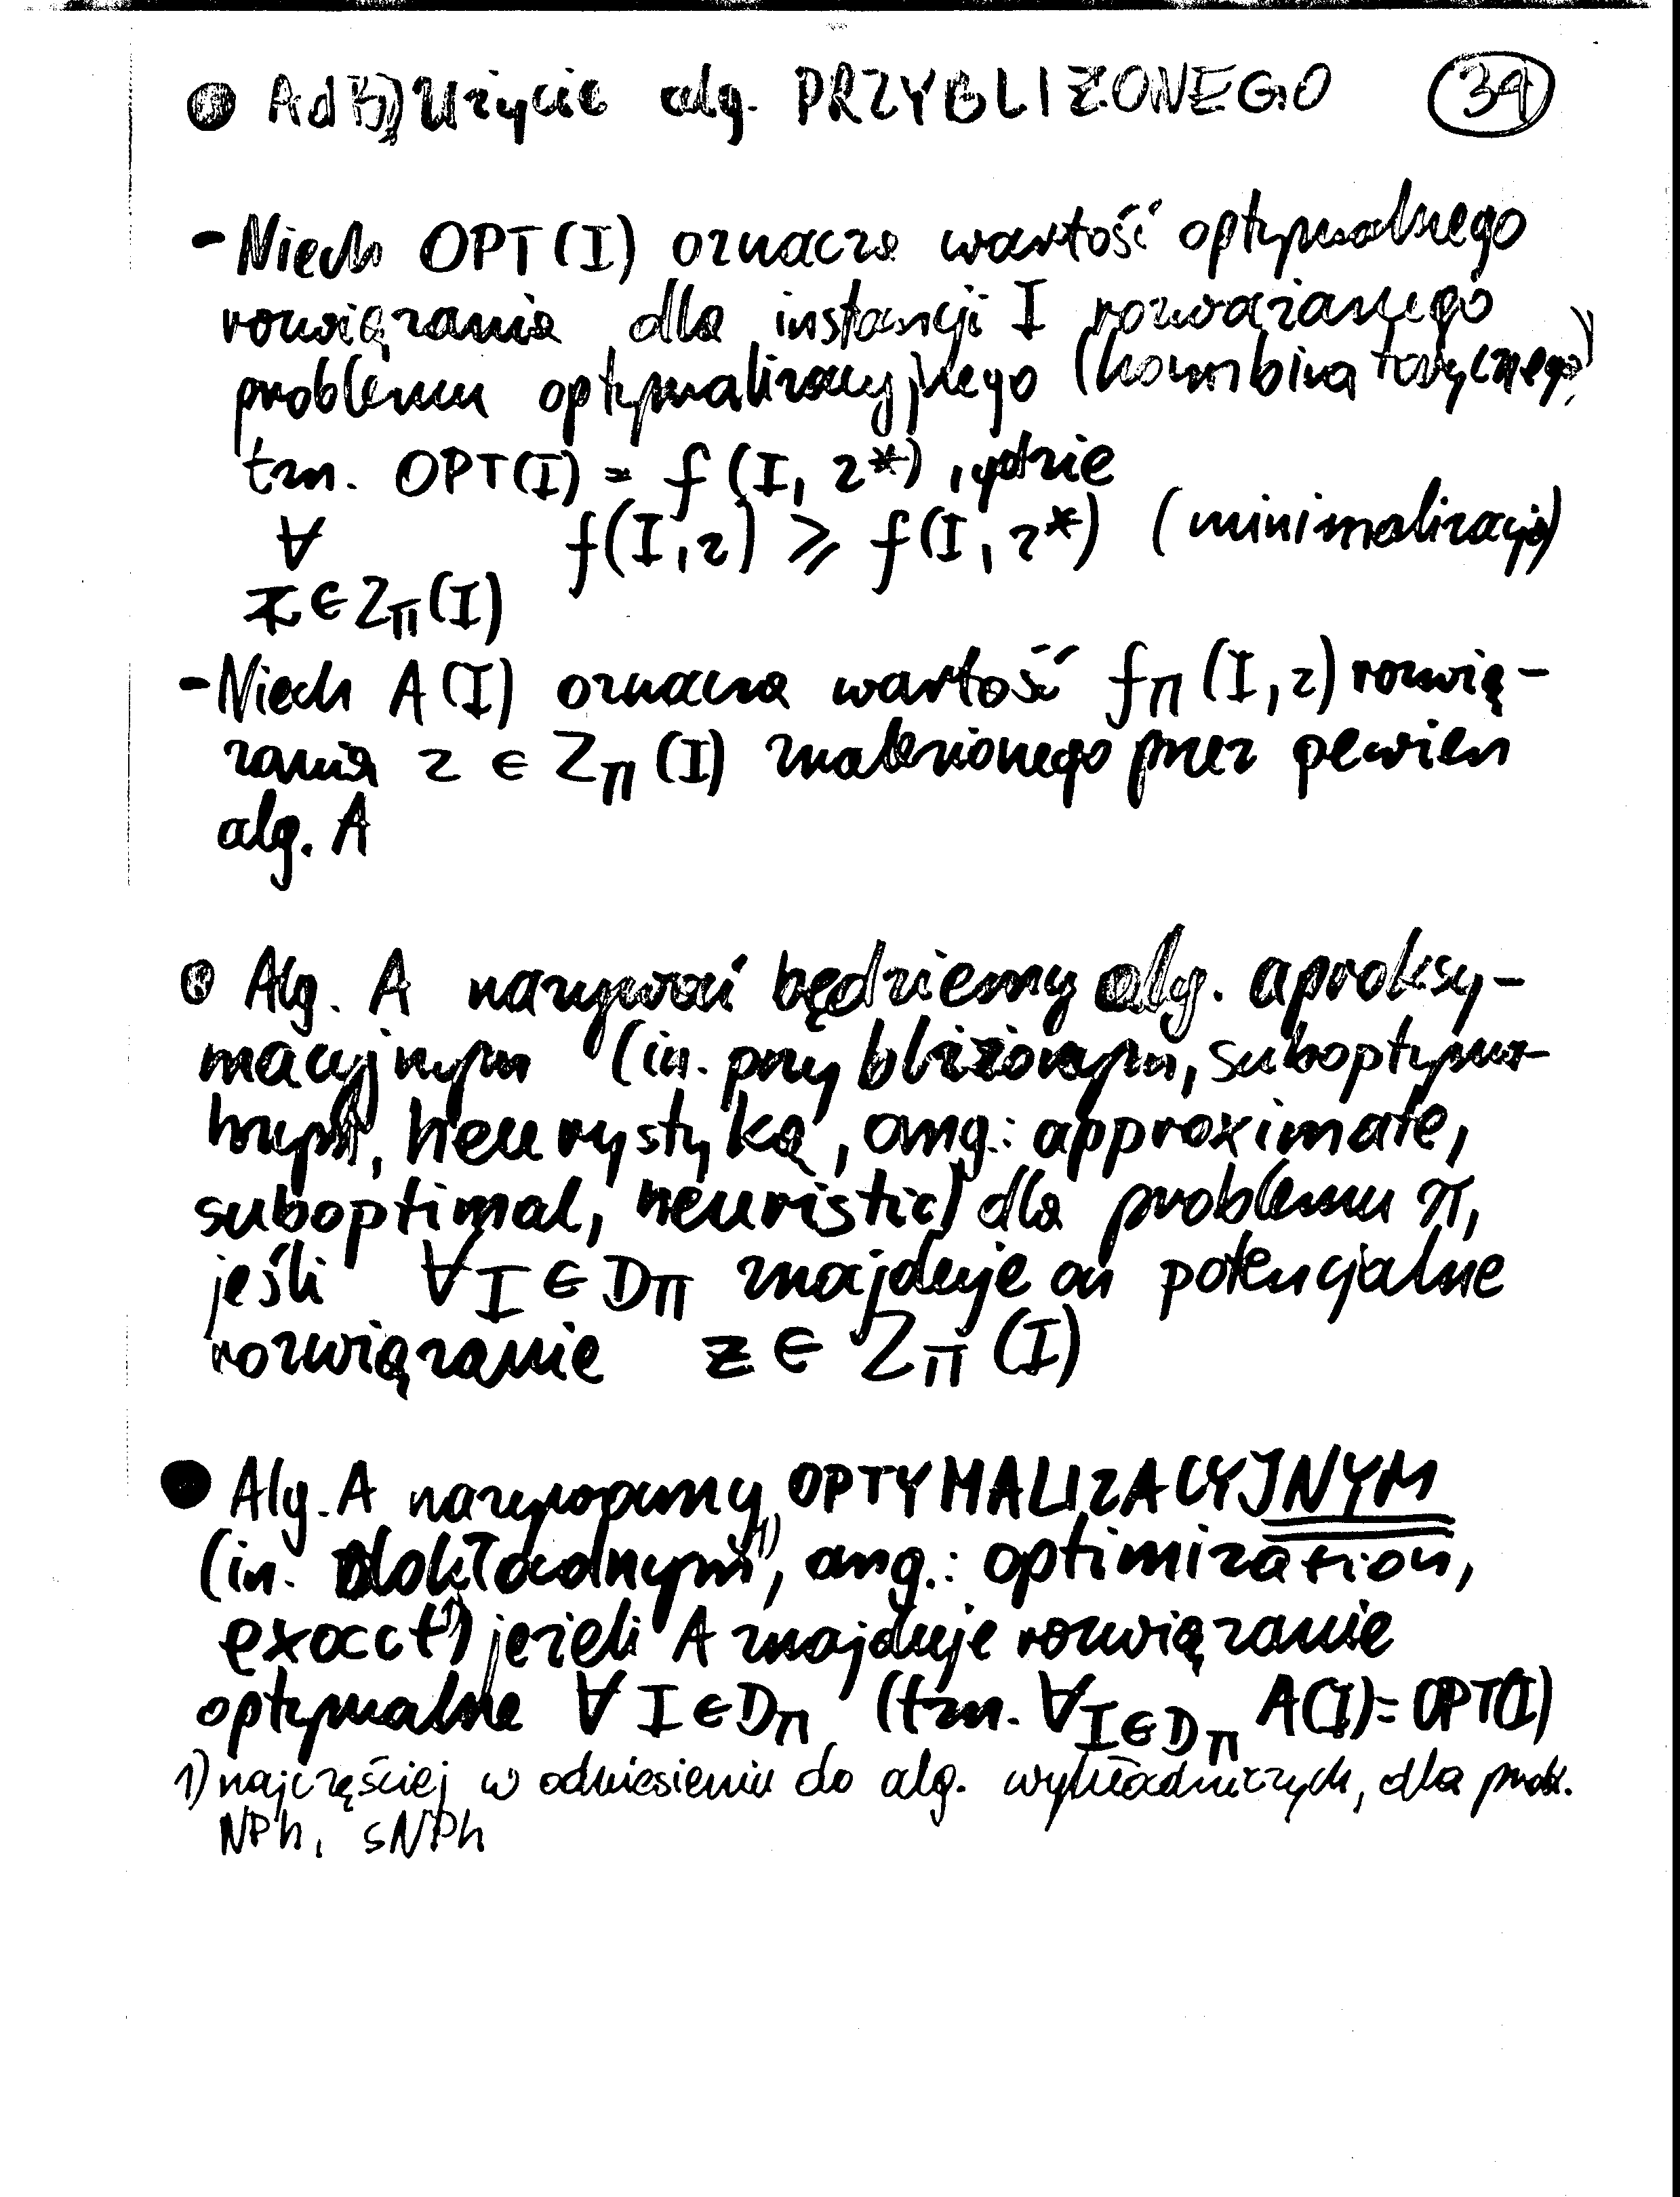 Ad B) Użycie alg. PRZYBLIŻONEGO 39
- Niech OPT(I) oznacza wartość optymalnego
rozwiązania dla instancji I rozważanego
problemu optymalizacyjnego (kombinatorycznego),
tzn. OPT(I) = f(I, z*), gdzie
∀ f(I,z) ⩾ f(I, z*) (minimalizacja)
z ∈ Z_π(I)
- Niech A(I) oznacza wartość f_π(I,z) rozwią-
zania z ∈ Z_π(I) znalezionego przez pewien
alg. A
Alg. A nazywać będziemy alg. aproksy-
macyjnym (in. przybliżonym, suboptyma-
lnym, heurystyką, ang.: approximate,
suboptimal, heuristic) dla problemu π,
jeśli ∀ I ∈ D_π znajduje on potencjalne
rozwiązanie z ∈ Z_π(I)
Alg. A nazywamy OPTYMALIZACYJNYM
(in. dokładnym¹⁾, ang.: optimization,
exact¹⁾) jeżeli A znajduje rozwiązanie
optymalne ∀ I ∈ D_π (tzn. ∀ I ∈ D_π A(I) = OPT(I)
1) najczęściej w odniesieniu do alg. wykładniczych, dla probl.
NPh, sNPh